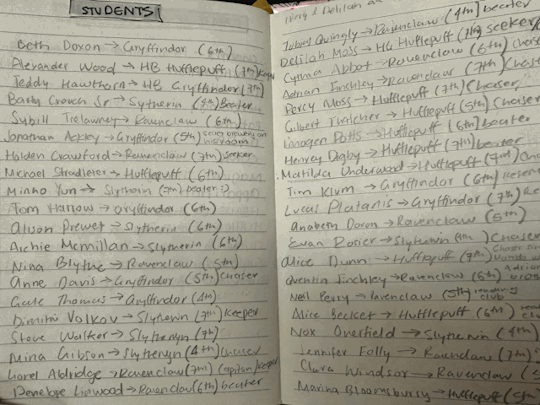 STUDENTS
Beth Doxon → Gryffindor (6th)
Alexander Wood → HB Hufflepuff (7th) Keeper
Teddy Hawthorn → HB Gryffindor (7th)
Barty Crouch Jr → Sytherin (7th) Beater
Sybill Trelawney → Ravenclaw (6th)
Jonathan Ackley → Gryffindor (5th)
Holden Crawford → Ravenclaw (7th) Seeker
Michael Stradleter → Hufflepuff (6th)
Minho Yun → Slytherin beater
Tom Harrow → Gryffindor (6th)
Alvon Prewet → Slytherin (6th)
Archie Mcmillan → Slytherin (6th)
Nina Blythe → Ravenclaw (5th)
Anne Davis → Gryffindor (5th) Chaser
Gale Thomas → Gryffindor (4th)
Dimitri Volkov → Slytherin (7th) Keeper
Steve Walker → Slytheryn (7th)
Mina Gibson → Slytheryn (4th) Chaser
Lionel Aldridge → Ravenclaw (7th) Captain Keeper
Penelope Linwood → Ravenclaw (6th) beater
Delilah
Quingly → Ravenclaw (4th) beater
Delilah Moss → HG Hufflepuff (7th) Seeker
Cynthia Abbot → Ravenclaw (6th) Chaser
Adrian Finchley → Ravenclaw (7th) Chaser
Percy Moss → Hufflepuff (7th) Chaser
Gilbert Thatcher → Hufflepuff (5th) Chaser
Imogen Potts → Hufflepuff (6th) beater
Henry Digby → Hufflepuff (7th) beater
Matilda Underwood → Hufflepuff (7th)
Tim Klum → Gryffindor (6th)
Lucas Platanis → Gryffindor (7th)
Anabeth Doxon → Ravenclaw (5th)
Evan Rosier → Slytherin Chaser
Alice Dunn → Hufflepuff (7th)
Quentin Finchley → Ravenclaw (5th)
Neil Perry → Ravenclaw (5th) reading club
Alice Becket → Hufflepuff (6th) club
Nox Overfield → Slytherin (4th)
Jennifer Folly → Ravenclaw (7th)
Clara Windsor → Ravenclaw
Marina Bloomsbury → Hufflepuff